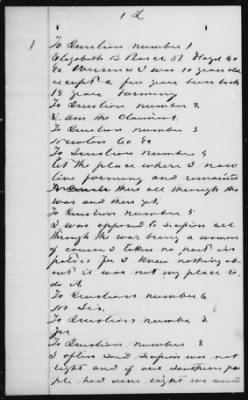 1
1
To Question number 1
Elizabeth B
Ga I was 10 years old
except a few years been back
18 years farming
To Question number 2
I am the claimant.
To Question number 3
Newton Co. Ga
To Question number 4
at the place where I now
live farming and remained
there all through the
war and there yet,
To Question number 5
I was opposed to
all
through the war being a woman
of course I taken no part in
politics for I knew nothing ab
out it was not my place to
do it
To Questions number 6
No Sir,
To Question number 7
Yes
To Question number 8
I often said was not
right and if our Southern peo
ple had done right we would